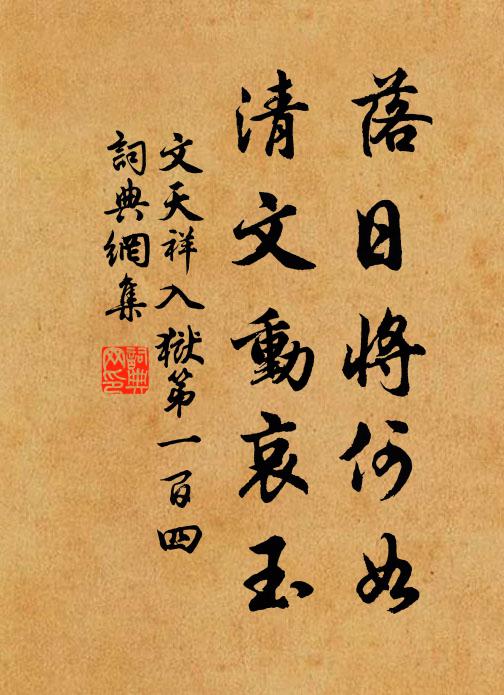 落日將何如
清文動哀玉
文天祥入獄第一百四
詞典網集
詞典
网印